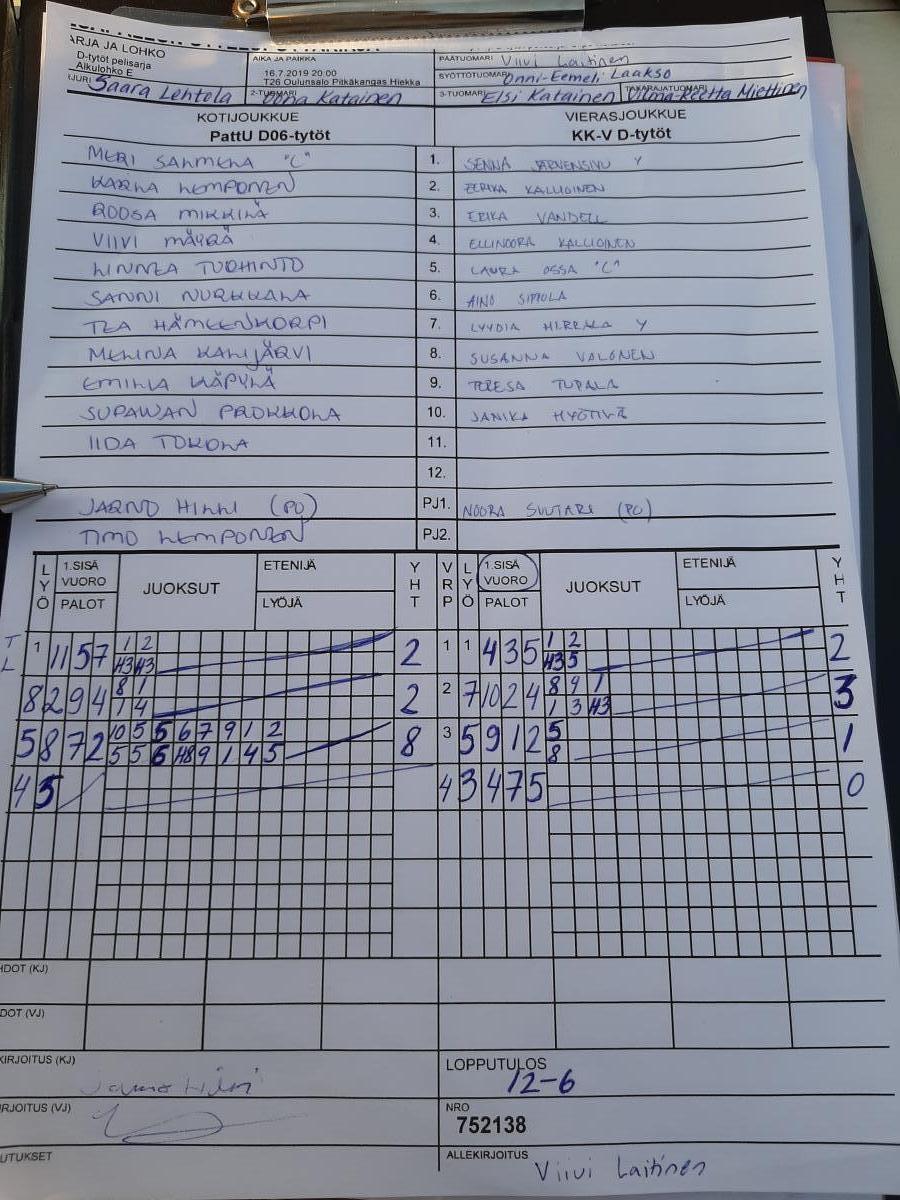 ARJA JA LOHKO
D-tytöt pelisarja
Alkulohko E
AIKA JA PAIKKA
16.7.2019 20:00
T26 Oulunsalo Pitkäkangas Hiekka
PÄÄTUOMARI Viivi Laitinen
SYÖTTÖTUOMARI Onni-Eemeli Laakso
Saara Lehtola
2-TUOMARI Oona Katainen
3-TUOMARI Elsi Katainen
TAKARAJATUOMARI Vilma-Reetta Miettinen
KOTIJOUKKUE VIERASJOUKKUE
PattU D06-tytöt KK-V D-tytöt
MERI SAHMELA "C" 1. SENNA JÄRVENSIVU Y
KARLA LEMPONEN 2. EERIKA KALLIOINEN
ROOSA MIKKILÄ 3. ERIKA VANDELL
VIIVI MÄYRÄ 4. ELLINOORA KALLIOINEN
LINNEA TUOHINTO 5. LAURA OSSA "C"
SANNI NURKKALA 6. AINO SIPIOLA
TEA HÄMEENKORPI 7. LYYDIA HIRKALA Y
MELINA KALIJÄRVI 8. SUSANNA VALONEN
EMILIA KÄPYLÄ 9. TERESA TUPALA
SUPAWAN PROKKOLA 10. JANIKA HYÖTYLÄ
IIDA TOKOLA 11.
12.
JARNO HILLI (PJ) PJ1. NOORA SUUTARI (PJ)
TIMO LEMPONEN PJ2.
LYÖ 1.SISÄ VUORO PALOT JUOKSUT ETENIJÄ LYÖJÄ YHT VRP LYÖ 1.SISÄ VUORO PALOT JUOKSUT ETENIJÄ LYÖJÄ YHT
T 1 11 5 7 1 2 2 1 1 4 3 5 1 2 2
L H3 H3 H3 5
8 2 9 4 8 1 2 2 7 10 2 4 8 9 1 3
1 4 1 3 H3
5 8 7 2 10 5 5 6 7 9 1 2 8 3 5 9 1 2 5 1
5 5 6 H8 9 1 4 5 8
4 5 4 3 4 7 5 0
HDOT (KJ)
DOT (VJ)
KIRJOITUS (KJ) Jarno Hilli
LOPPUTULOS
12-6
RJOITUS (VJ)
NRO
752138
UTUKSET
ALLEKIRJOITUS
Viivi Laitinen